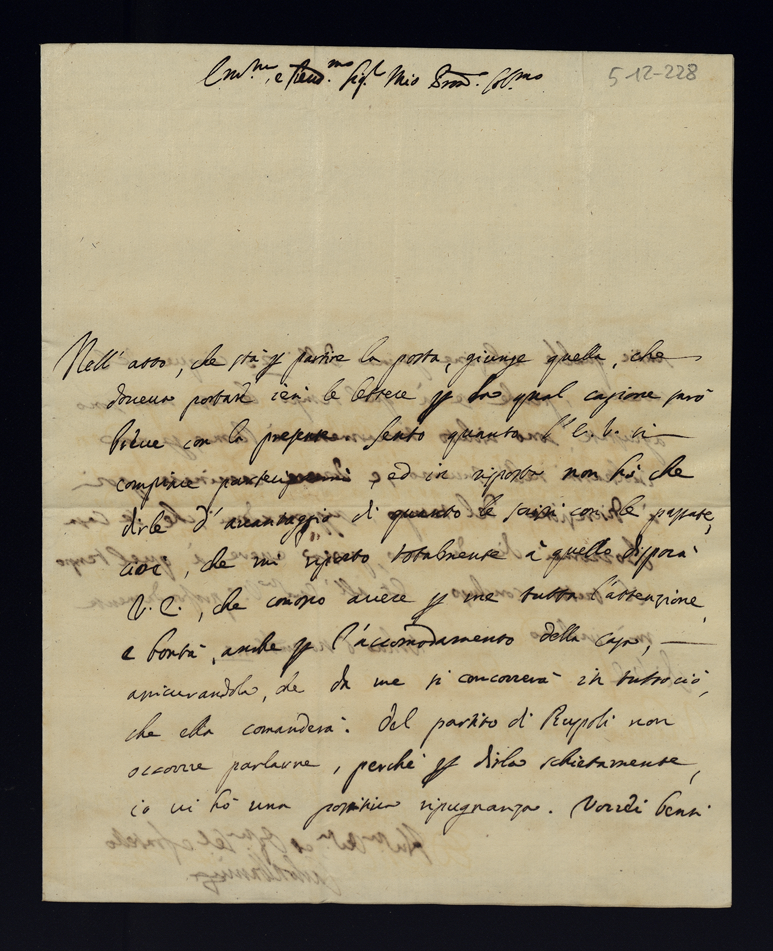 Em.mo, e Rev.mo Sig.r Mio Pron. Col.mo
5-12-228
Nell' atto, che stà p partire la posta, giunge quella, che
doveva portare ieri le lettere p la qual cagione sarò
breve con la presente. Sento quanto l' E. V. si
compiace parteciparmi, ed in risposta non hò che
dirle d' avantaggio di quanto le scrissi con le passate,
cioè, che mi riporto totalmente à quello disporà
V. E., che conosco avere p me tutta l'attenzione,
e bontà, anche p l'accomodamento della casa,
assicurandola, che da me si concorrerà in tutto ciò,
che ella comanderà. Del partito di Ruspoli non
occorre parlarne, perché p dirla schiettamente,
io vi hò una positiva ripugnanza. Vorrei bensì